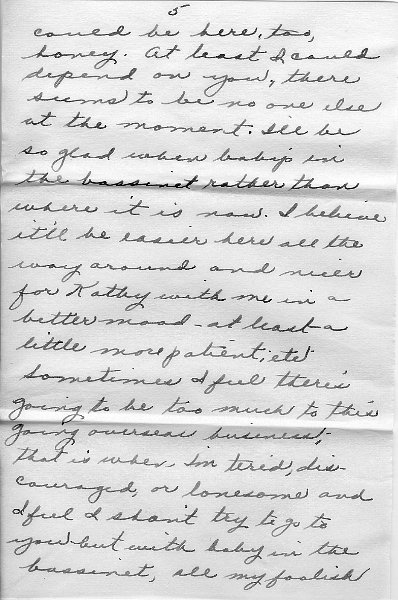 5
could be here, too,
honey. At least I could
depend on you, there
seems to be no one else
at the moment. I'll be
so glad when baby is in
the bassinet rather than
where it is now. I believe
it'll be easier here all the
way around and nicer
for Kathy with me in a
better mood - at least a
little more patient, etc!
Sometimes I feel there's
going to be too much to this
going overseas business,
that is when I'm tired, dis-
couraged, or lonesome and
I feel I shan't try to go to
you but with baby in the
bassinet, all my foolish